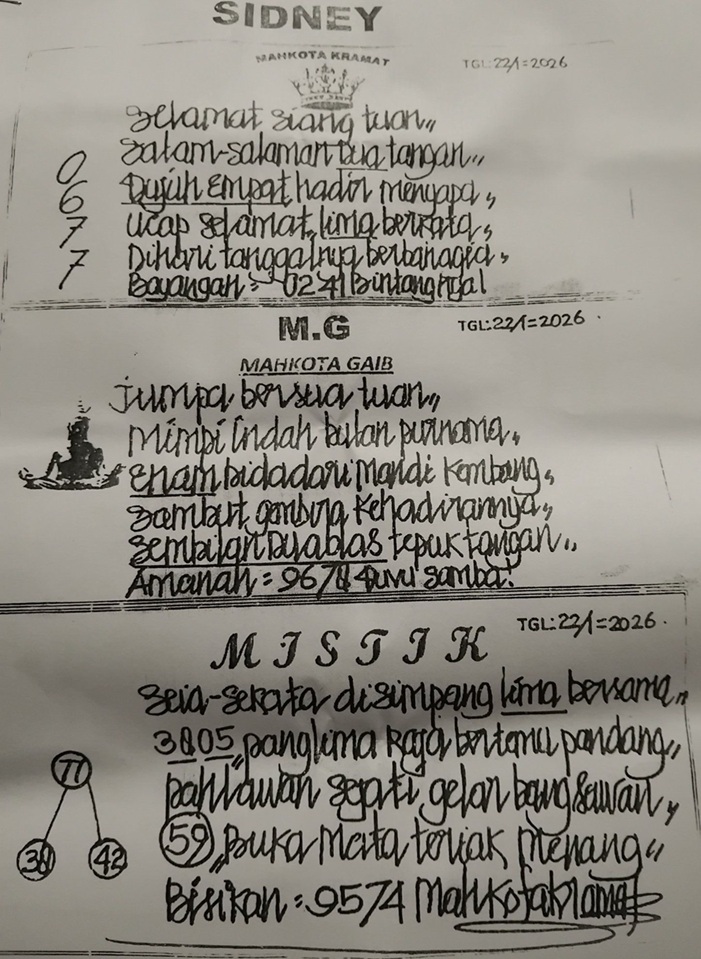 SIDNEY
MAHKOTA KRAMAT
TGL:22/1=2026
Selamat siang tuan,,
Salam-salaman Dua tangan,,
0 6 7 7
Dujuh Empat hadir menyapa,
Ucap selamat, lima berkata,
Dihari tanggalnya berbahagia,
Bayangan = 0241 Bintang
M.G
TGL:22/1=2026
MAHKOTA GAIB
Jumpa bersua tuan,,
Mimpi indah bulan purnama,
Enam bidadari Mandi Kembang,
Sambut gembira Kehadirannya,
Sembilan Duablas tepuk tangan,,
Amanah =
MISTIK
TGL:22/1=2026
Seia-sekata disimpang lima bersama,,
3805,, panglima Raja bertemu pandang,,
pahlawan sejati, gelar bangsawan,
77
38 42
59,, Buka Mata teriak Menang,,
Bisikan = 9574 Mahkotakramat